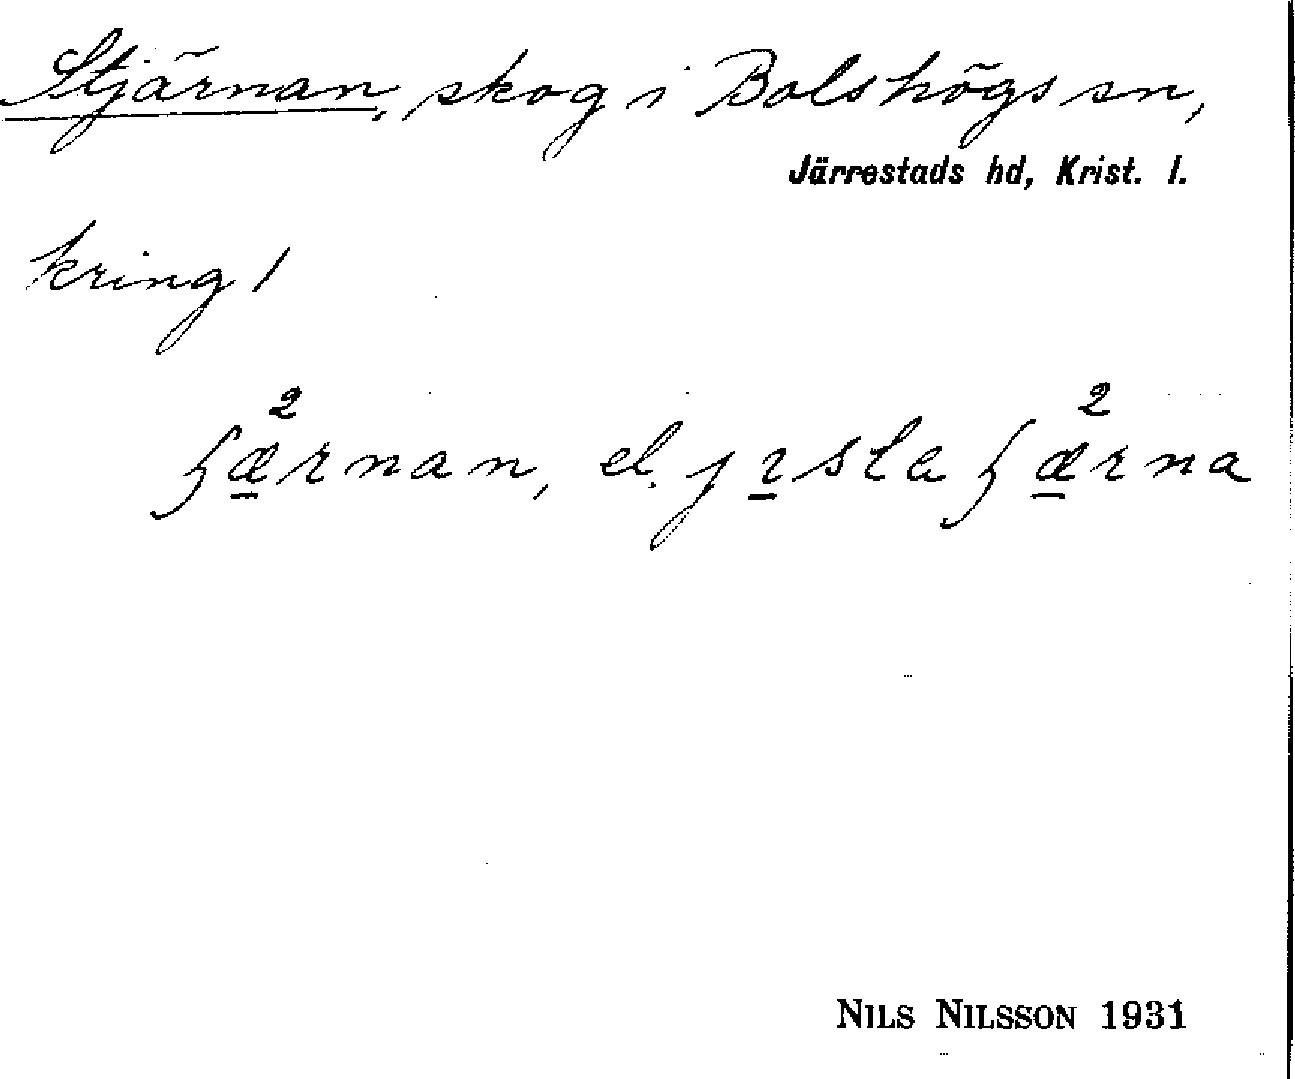 Stjärnan, skog i Bolshögs sn,
Järrestads hd, Krist. l.
kring 1
ʂæ̱²rnan, el. jɪ̱sla ʂæ̱²rna
NILS NILSSON 1931